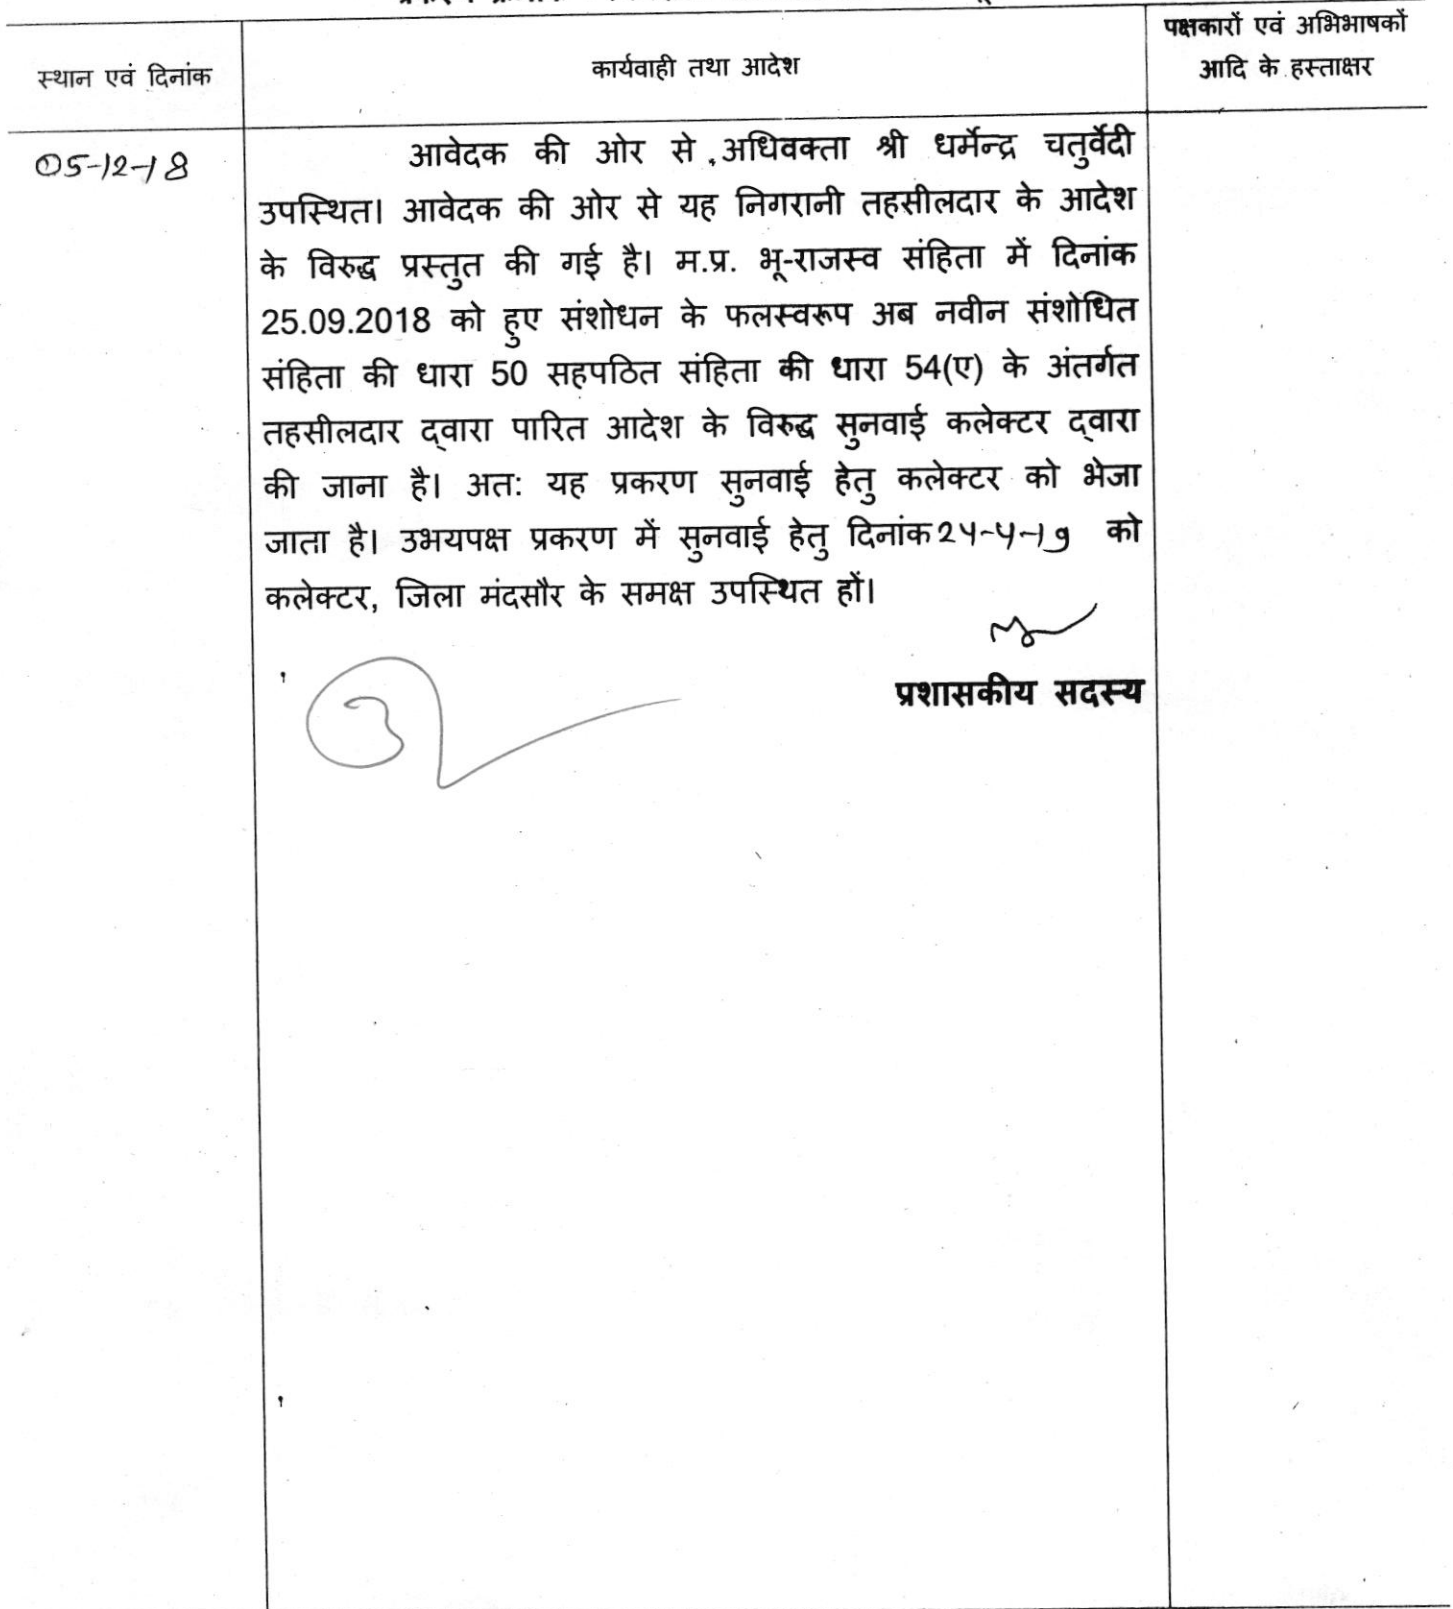 स्थान एवं दिनांक
कार्यवाही तथा आदेश
पक्षकारों एवं अभिभाषकों
आदि के हस्ताक्षर
05-12-18
आवेदक की ओर से अधिवक्ता श्री धर्मेन्द्र चतुर्वेदी
उपस्थित। आवेदक की ओर से यह निगरानी तहसीलदार के आदेश
के विरुद्ध प्रस्तुत की गई है। म.प्र. भू-राजस्व संहिता में दिनांक
25.09.2018 को हुए संशोधन के फलस्वरूप अब नवीन संशोधित
संहिता की धारा 50 सहपठित संहिता की धारा 54(ए) के अंतर्गत
तहसीलदार द्वारा पारित आदेश के विरुद्ध सुनवाई कलेक्टर द्वारा
की जाना है। अत: यह प्रकरण सुनवाई हेतु कलेक्टर को भेजा
जाता है। उभयपक्ष प्रकरण में सुनवाई हेतु दिनांक 24-4-19 को
कलेक्टर, जिला मंदसौर के समक्ष उपस्थित हों।
प्रशासकीय सदस्य